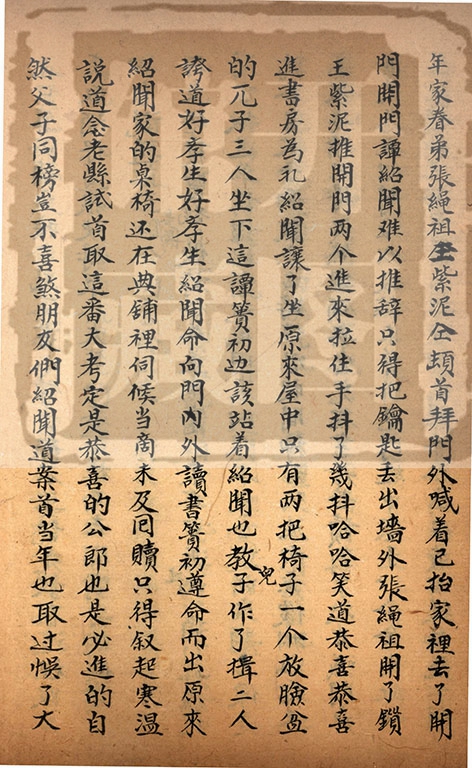 年家眷弟張繩祖王紫泥仝頓首拜門外喊着已抬家裡去了開
門開門譚紹聞难以推辞只得把鑰匙丢出墻外張繩祖開了鎖
王紫泥推開門两个進來拉住手抖了幾抖哈哈笑道恭喜恭喜
進書房為礼紹聞讓了坐原來屋中只有两把椅子一个放臉盆
的兀子三人坐下這譚簣初边该站着紹聞也教兒子作了揖二人
誇道好孝生好孝生紹聞命向門內外讀書簣初遵命而出原來
紹聞家的桌椅还在典舖裡伺候当啇未及囘贖只得叙起寒温
說道念老縣試首取這番大考定是恭喜的公郎也是必進的自
然父子同榜豈不喜煞朋友們紹聞道案首当年也取过悞了大